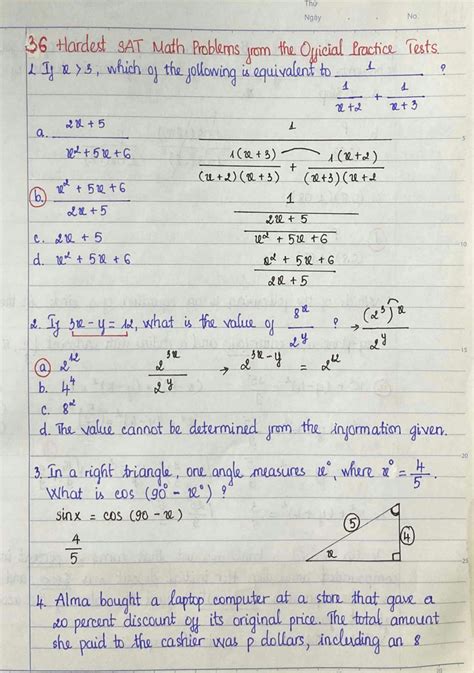 Thứ
Ngày No.
36 Hardest SAT Math Problems from the Official Practice Tests
1. If x > 3, which of the following is equivalent to 1 / (1/(x+2) + 1/(x+3)) ?
a. (2x + 5) / (x² + 5x + 6)
1 / (1(x+3)/((x+2)(x+3)) + 1(x+2)/((x+3)(x+2))
b. (x² + 5x + 6) / (2x + 5)
1 / ((2x + 5)/(x² + 5x + 6))
c. 2x + 5
d. x² + 5x + 6
(x² + 5x + 6) / (2x + 5)
2. If 3x - y = 12, what is the value of 8ˣ / 2ʸ ? → (2³)ˣ / 2ʸ
a. 2¹²
2³ˣ / 2ʸ → 2³ˣ⁻ʸ = 2¹²
b. 4⁴
c. 8²
d. The value cannot be determined from the information given.
3. In a right triangle, one angle measures x°, where x° = 4/5.
What is cos (90° - x°) ?
sinx = cos (90 - x)
4/5
5 4
x
4. Alma bought a laptop computer at a store that gave a
20 percent discount of its original price. The total amount
she paid to the cashier was p dollars, including an 8